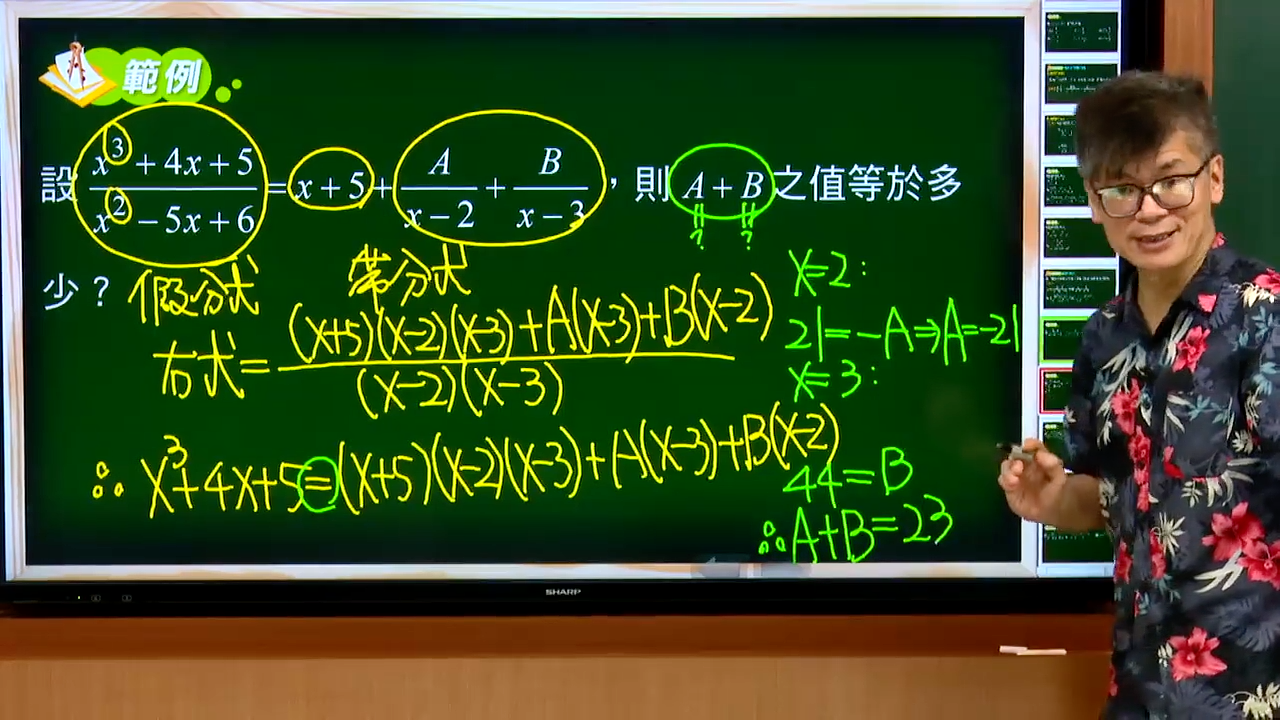 範例
設 (x^3 + 4x + 5)/(x^2 - 5x + 6) = x + 5 + A/(x - 2) + B/(x - 3)，則 A + B 之值等於多
? ?
少？
假分式 帶分式
右式 = ((x+5)(x-2)(x-3)+A(x-3)+B(x-2))/((x-2)(x-3))
∴ x^3+4x+5=(x+5)(x-2)(x-3)+A(x-3)+B(x-2)
x=2:
21=-A⇒A=-21
x=3:
44=B
∴A+B=23
SHARP